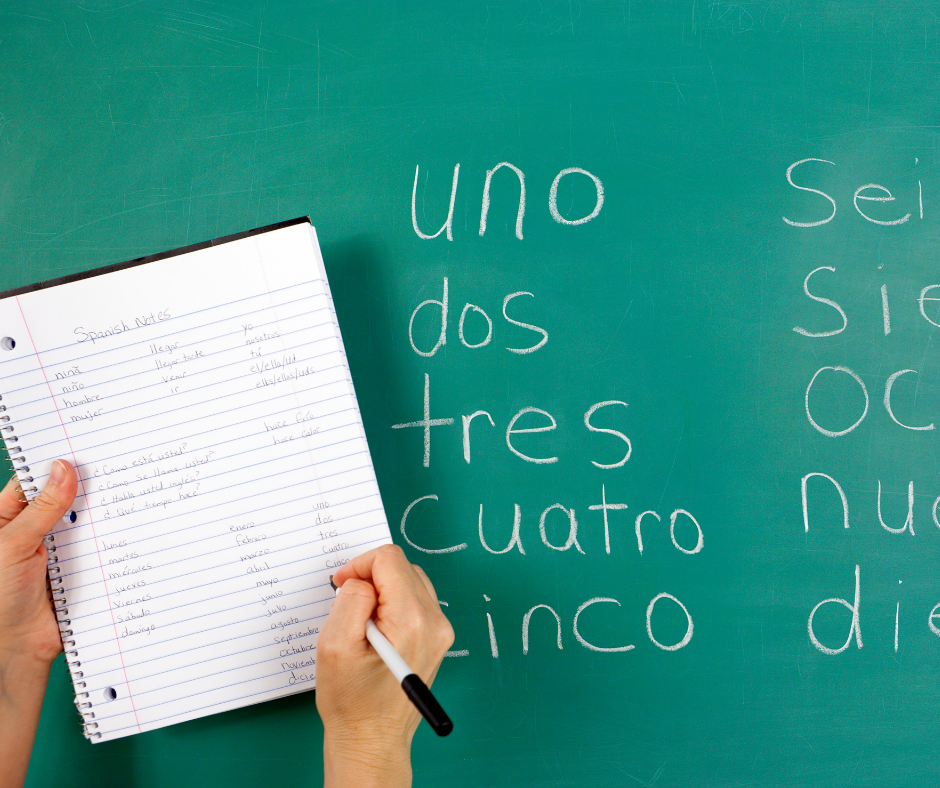 Spanish Notes
niña llegar yo
niño llegar tarde nosotros
hombre venir tú
mujer ir el/ella/Ud
ellos/ellas/uds
hace frío
hace calor
¿Como está usted?
¿Como se llama usted?
¿Habla usted ingles?
¿Que tiempo hace?
lunes enero uno
martes febrero dos
miércoles marzo tres
jueves abril cuatro
viernes mayo cinco
sábado junio
domingo julio
agosto
septiembre
octubre
noviemb
dicie
uno
dos
tres
cuatro
cinco
Sei
Sie
oc
nu
die